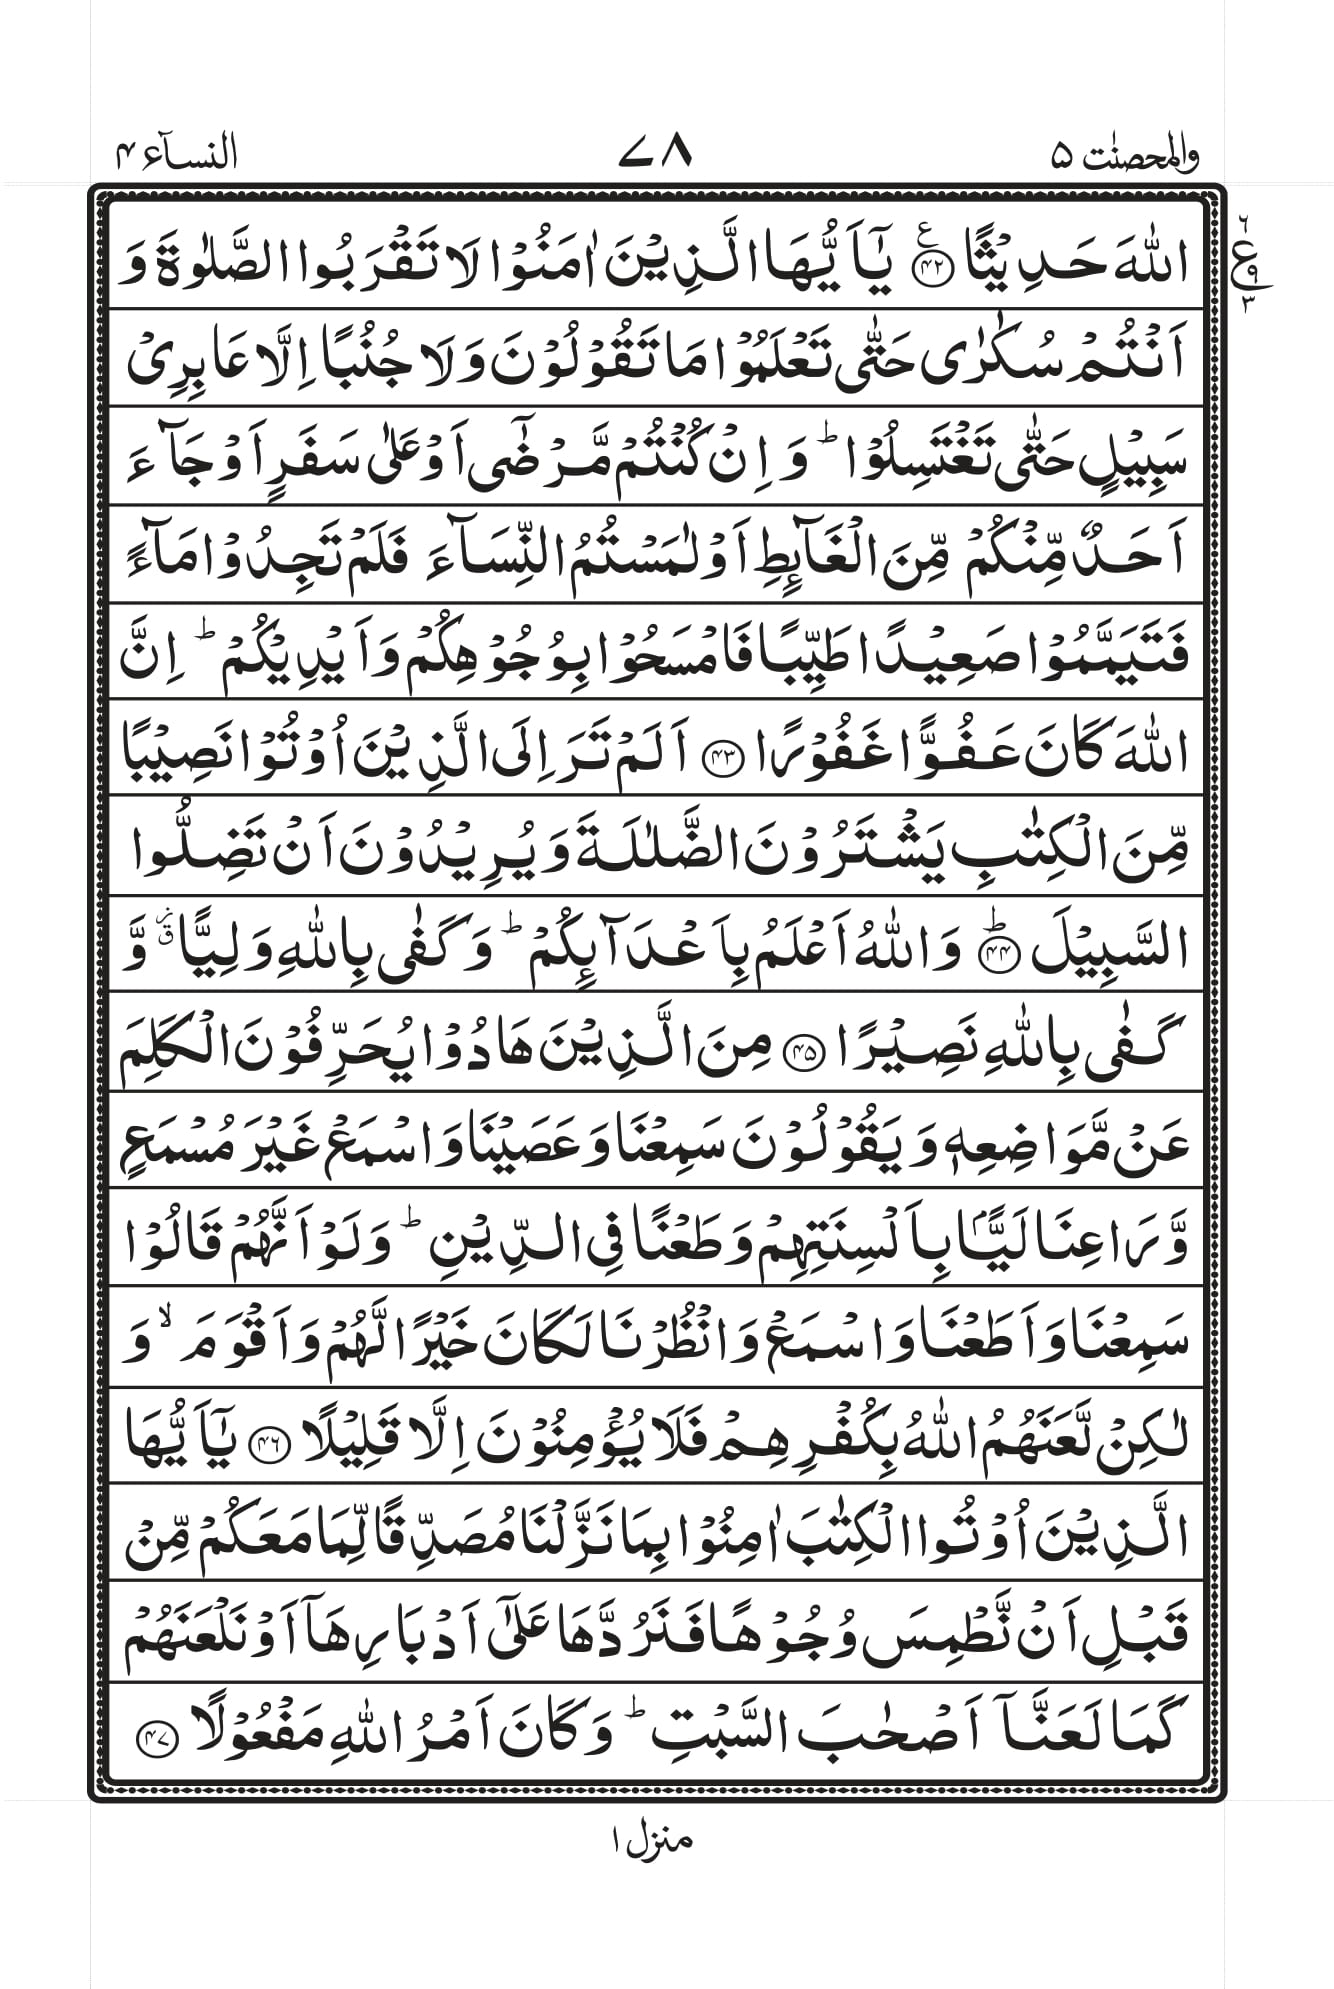 والمحصنٰت ۵ ۷۸ النسآء ۴
اللّٰهَ حَدِیْثًا ﴿۴۲﴾ ع یٰۤاَیُّهَا الَّذِیْنَ اٰمَنُوْا لَا تَقْرَبُوا الصَّلٰوةَ وَ
۶ ع ۹ ۳
اَنْتُمْ سُكٰرٰى حَتّٰى تَعْلَمُوْا مَا تَقُوْلُوْنَ وَلَا جُنُبًا اِلَّا عَابِرِیْ
سَبِیْلٍ حَتّٰى تَغْتَسِلُوْا ؕ وَ اِنْ كُنْتُمْ مَّرْضٰۤى اَوْ عَلٰى سَفَرٍ اَوْ جَآءَ
اَحَدٌ مِّنْكُمْ مِّنَ الْغَآىِٕطِ اَوْ لٰمَسْتُمُ النِّسَآءَ فَلَمْ تَجِدُوْا مَآءً
فَتَیَمَّمُوْا صَعِیْدًا طَیِّبًا فَامْسَحُوْا بِوُجُوْهِكُمْ وَ اَیْدِیْكُمْ ؕ اِنَّ
اللّٰهَ كَانَ عَفُوًّا غَفُوْرًا ﴿۴۳﴾ اَلَمْ تَرَ اِلَى الَّذِیْنَ اُوْتُوْا نَصِیْبًا
مِّنَ الْكِتٰبِ یَشْتَرُوْنَ الضَّلٰلَةَ وَ یُرِیْدُوْنَ اَنْ تَضِلُّوا
السَّبِیْلَ ﴿۴۴﴾ؕ وَ اللّٰهُ اَعْلَمُ بِاَعْدَآىِٕكُمْ ؕ وَ كَفٰى بِاللّٰهِ وَلِیًّا ۗۙ وَّ
كَفٰى بِاللّٰهِ نَصِیْرًا ﴿۴۵﴾ مِنَ الَّذِیْنَ هَادُوْا یُحَرِّفُوْنَ الْكَلِمَ
عَنْ مَّوَاضِعِهٖ وَ یَقُوْلُوْنَ سَمِعْنَا وَ عَصَیْنَا وَ اسْمَعْ غَیْرَ مُسْمَعٍ
وَّ رَاعِنَا لَیًّۢا بِاَلْسِنَتِهِمْ وَ طَعْنًا فِی الدِّیْنِ ؕ وَ لَوْ اَنَّهُمْ قَالُوْا
سَمِعْنَا وَ اَطَعْنَا وَ اسْمَعْ وَ انْظُرْنَا لَكَانَ خَیْرًا لَّهُمْ وَ اَقْوَمَ ۙ وَ
لٰكِنْ لَّعَنَهُمُ اللّٰهُ بِكُفْرِهِمْ فَلَا یُؤْمِنُوْنَ اِلَّا قَلِیْلًا ﴿۴۶﴾ یٰۤاَیُّهَا
الَّذِیْنَ اُوْتُوا الْكِتٰبَ اٰمِنُوْا بِمَا نَزَّلْنَا مُصَدِّقًا لِّمَا مَعَكُمْ مِّنْ
قَبْلِ اَنْ نَّطْمِسَ وُجُوْهًا فَنَرُدَّهَا عَلٰۤى اَدْبَارِهَاۤ اَوْ نَلْعَنَهُمْ
كَمَا لَعَنَّاۤ اَصْحٰبَ السَّبْتِ ؕ وَ كَانَ اَمْرُ اللّٰهِ مَفْعُوْلًا ﴿۴۷﴾
منزل ۱